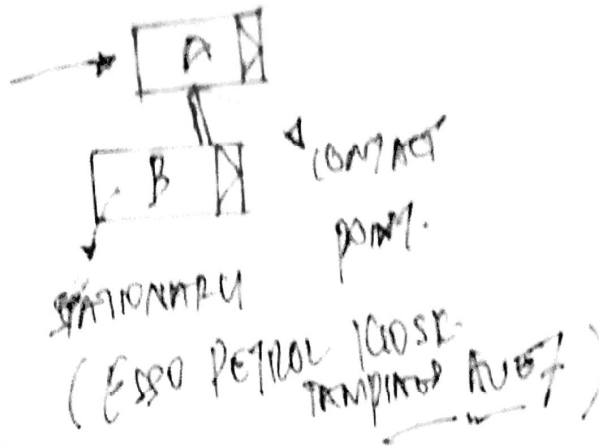 A
B
CONTACT
POINT.
STATIONARY
(ESSO PETROL KIOSK
TAMPINES AVE 7)